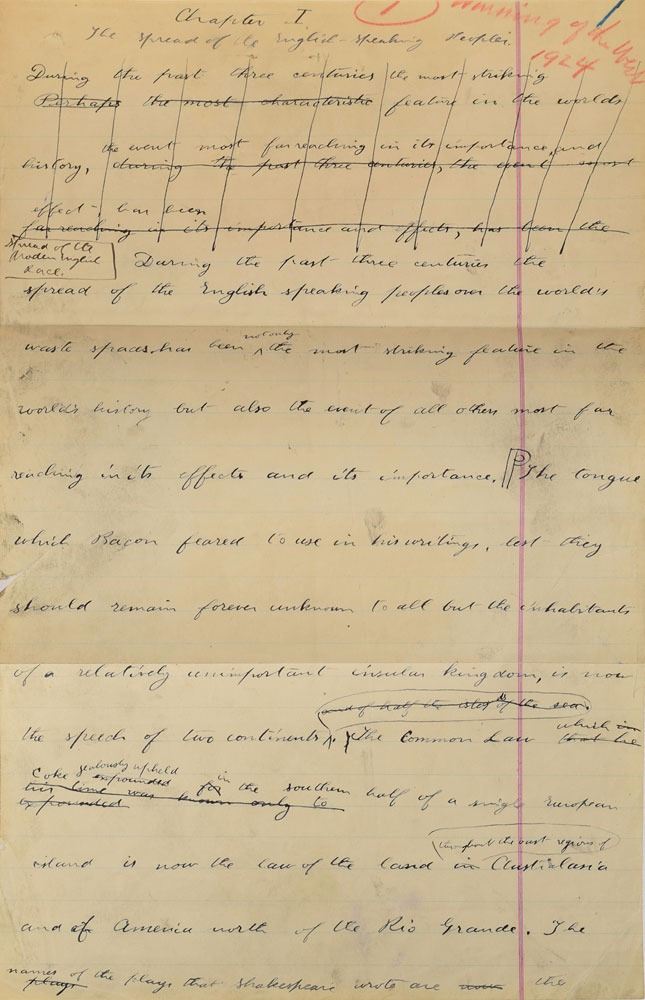 Chapter I
The spread of the English-speaking Peoples.
1
Winning of the West
1924
During the past three centuries the most striking
Perhaps the most characteristic feature in the worlds
the event most far reaching in its importance, and
history, during the past three centuries, the event most
effect - has been
far reaching in its importance and effects, has been the
spread of the
Modern English
Race.
During the past three centuries the
spread of the English speaking peoples over the world's
not only
waste spaces has been ^ the most striking feature in the
world's history but also the event of all others most far
reaching in its effects and its importance. P The tongue
which Bacon feared to use in his writings, lest they
should remain forever unknown to all but the inhabitants
of a relatively unimportant insular kingdom, is now
and of half the isles of the sea.
the speech of two continents. The Common Law which in that he
Coke jealously upheld expounded
his time was known only to for in the southern half of a single European
expounded
throughout the vast regions of
island is now the law of the land in Australasia
and of America north of the Rio Grande. The
names of the plays that Shakespeare wrote are now the
plays